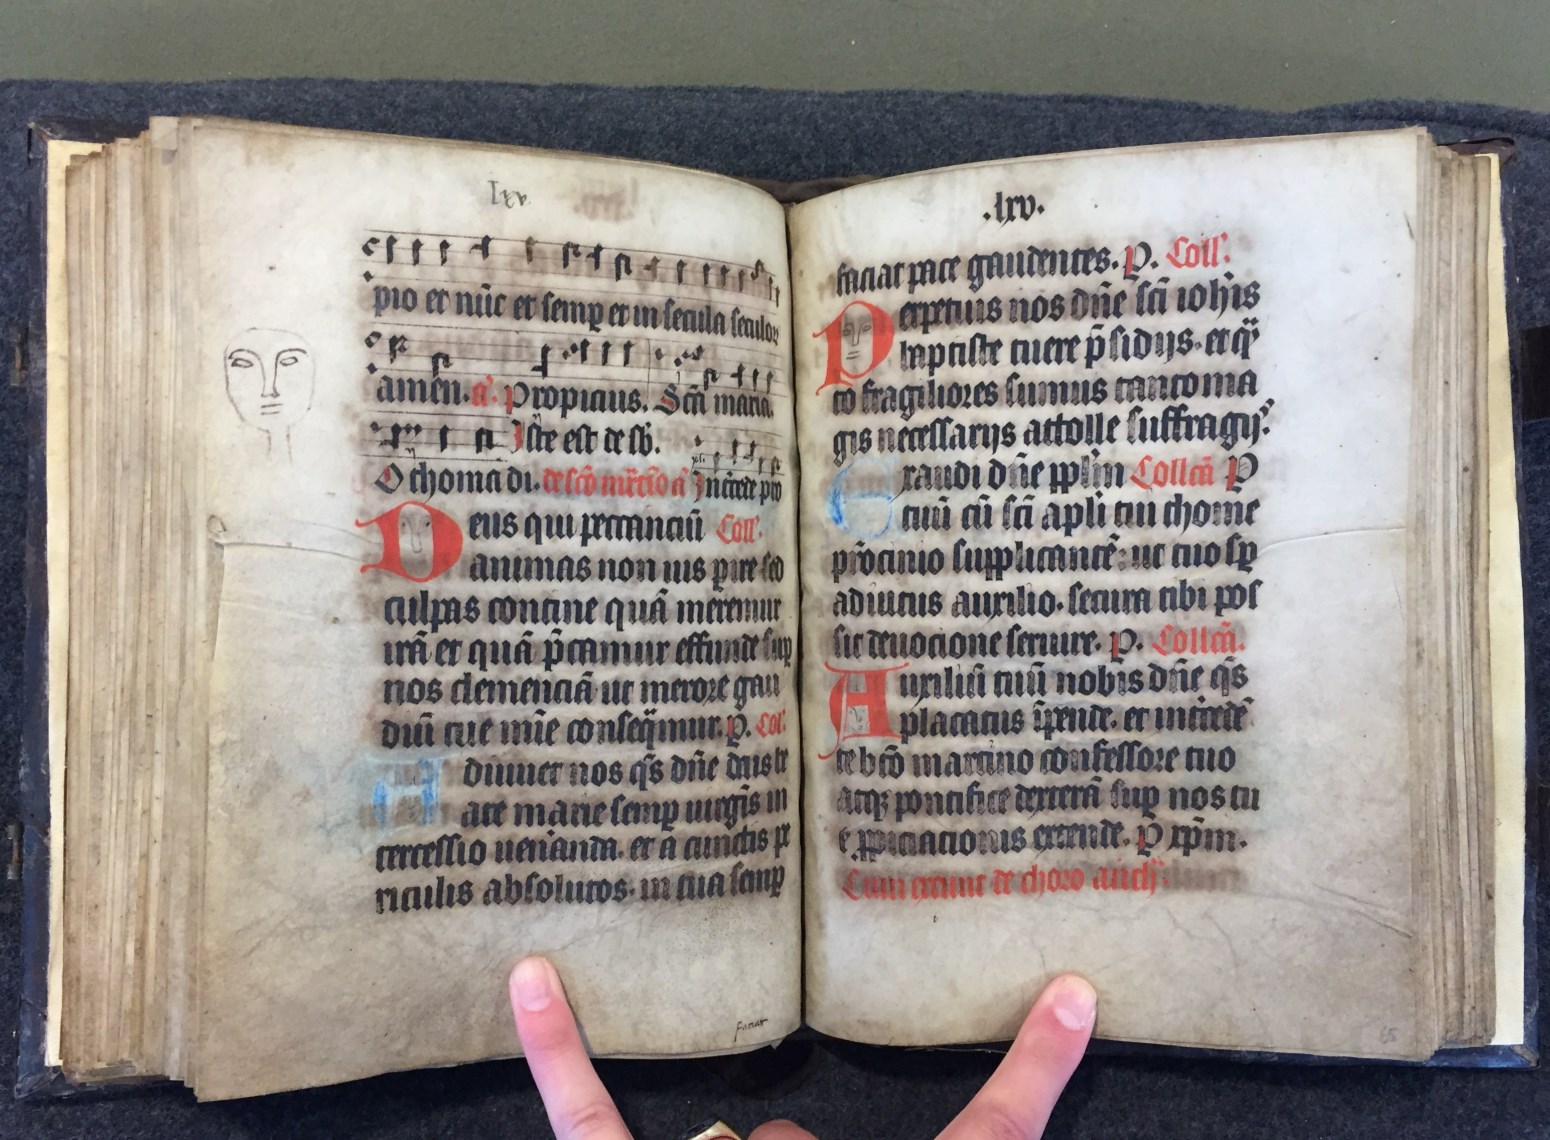 lxv
pio et nūc et semp et in secula seculor
amen. a. Propicius. Scā maria.
Iste est de sb.
O thoma di. de scō mr̄cio a Intercede pro
Deus qui peccanciū Coll.
animas non uis pire sed
culpas contine quā meremur
irā et quā p̄camur effunde sup
nos clemenciā ut merore gau
diū tue mīe conseq̄mur. P. Col.
Adiuuet nos q̄s dn̄e
marie semp uirgīs in
tercessio ueneranda. et a cunctis pe
riculis absolutos. in tua semp
faciat
.lxv.
faciat pace gaudentes. P. Coll.
Perpetuis nos dn̄e scī iohīs
baptiste tuere p̄sidijs. et q̄
to fragiliores sumus tanto ma
gis necessarijs attolle suffragijs
Exaudi dn̄e pplm Collcā P
tuū cū scī apli tui thome
pr̄ocinio supplicantē: ut tuo sp̄
adiutus auxilio. secura tibi pos
sit deuocione seruire. P. Collcā.
Auxiliū tuū nobis dn̄e q̄s
placatus īpende. et intercedē
te bt̄o martino confessore tuo
atqꝫ pontifice dexterā sup nos tu
e ppiciacionis extende. P xp̄m.
Cum exeunt de choro
65